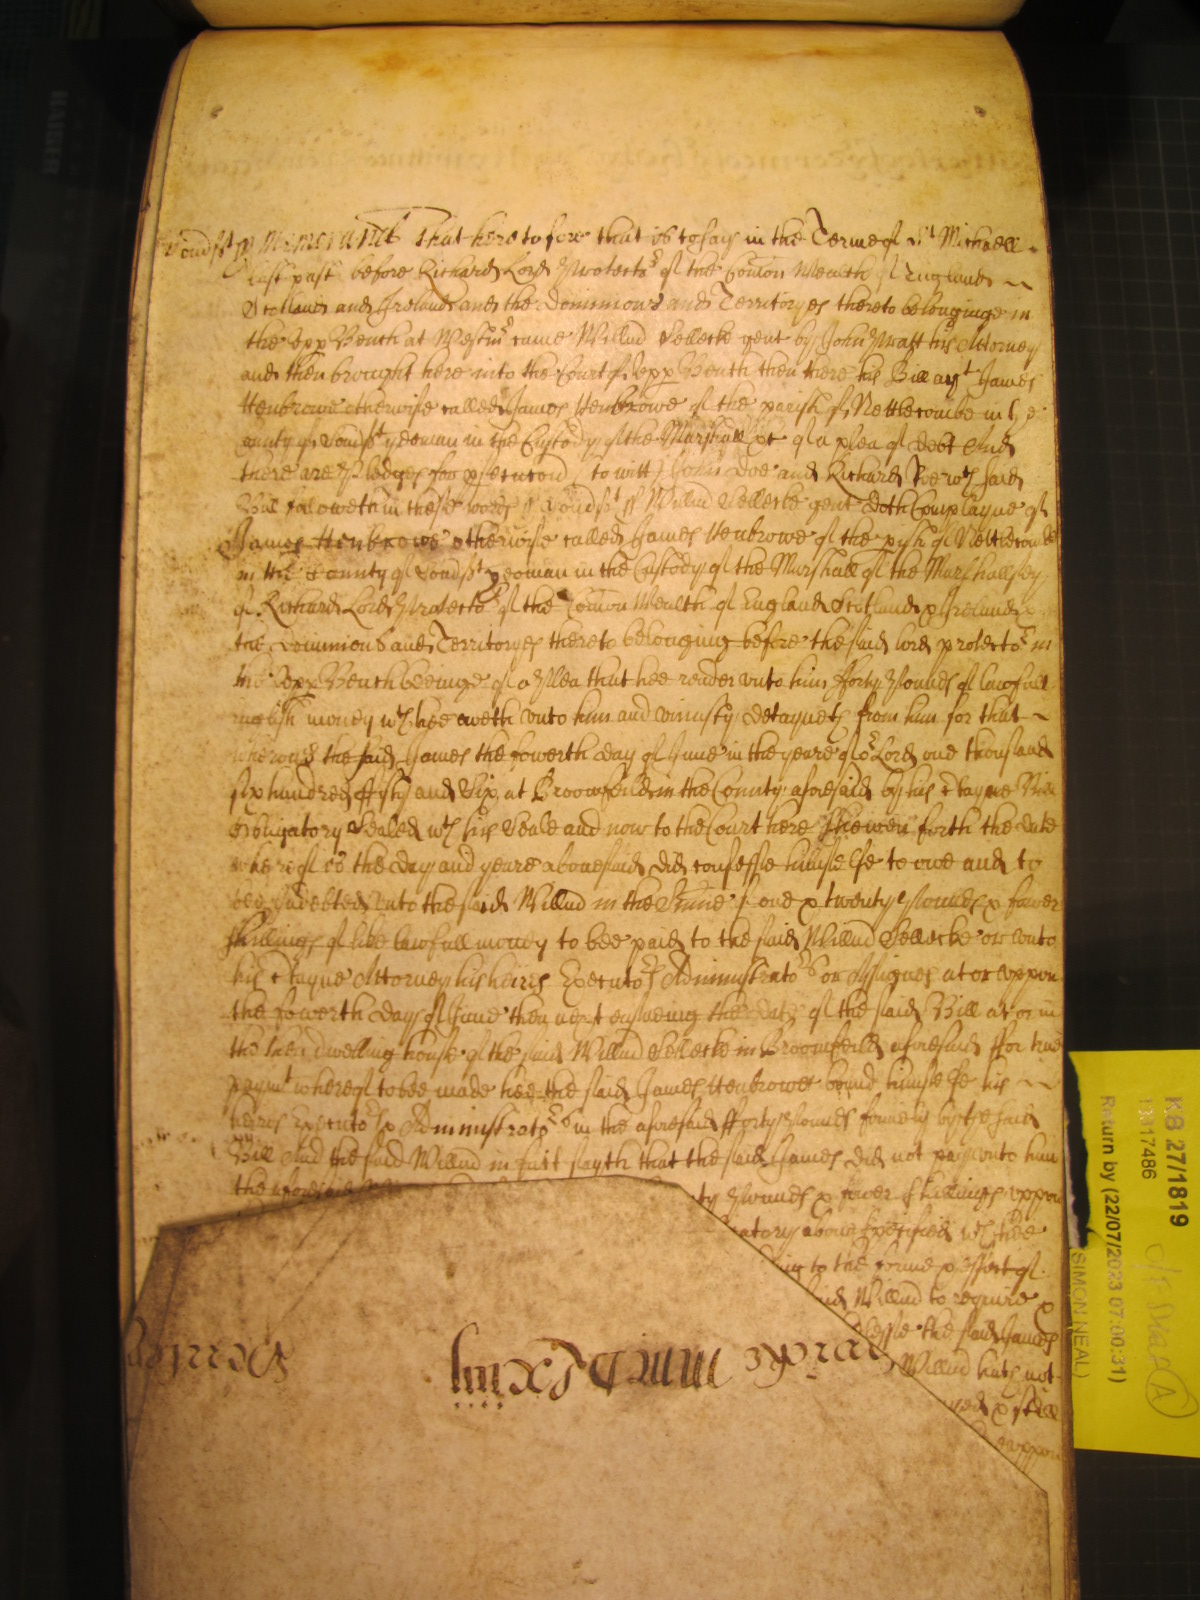 Somst ss Memorand That heretofore that is to say in the Terme of St Michaell
last past before Richard Lord Protector of the Comon Wealth of England
Scotland and Ireland and the Dominions and Territoryes thereto belonginge in
the upp Bench at Westmr came Willm Sellecke gent by John his Attorney
and then brought here into the Court of upp Bench then there his Bill agt James
Henbrowe otherwise called James Henbrowe of the parish of Nettlecombe in the
County of Somst yeoman in the Custody of the Marshall &c of a plea of debt And
there are Pledges for psecucon (to witt) John Doe and Richard Roe wch said
Bill followeth in these words ss Somst ss Willm Sellecke gent doth Complayne of
James Henbrowe otherwise called James Henbrowe of the pish of Nettlecombe
in the County of Somst yeoman in the Custody of the Marshall of the Marshallsey
of Richard Lord Protector of the Comon Wealth of England Scotland & Ireland &
the Dominions and Territoryes thereto belonging before the said lord protector in
the upp Bench beeinge of a Plea that hee render unto him fforty Pounds of lawfull
English money wch hee oweth unto him and uniustly detayneth from him for that
whereas the said James the fowerth day of June in the yeare of or Lord one thousand
six hundred ffifty and Six at Broomfeild in the County aforesaid by his ctayne Bill
obligatory Sealed wth his Seale and now to the Court here shewen forth the date
whereof is the day and yeare abovesaid did confesse himselfe to owe and to
bee Indebted unto the said Willm in the Sume of one & twenty Pounds & fower
shillings of like lawfull money to bee paid to the said Willm Sellecke or unto
his ctayne Attorney his heires Executors Administrators or Assignes at or uppon
the fowerth day of June then next ensueing the date of the said Bill at or in
the then dwelling house of the said Willm Sellecke in Broomfeild aforesaid ffor true
paymt whereof to bee made hee the said James Henbrowe bound himselfe his
heires Executors & Administrators in the aforesaid fforty Pounds firmely by the said
Bill And the said Willm in fact sayth that the said James did not pay unto him
the aforesaid ty Pounds & fower shillings uppon
gatory above specified wch hee
ing to the forme & effect of
said Willm to require &
the said James
Willm hath not
& still
uppon
KB 27/1819
13117486
Return by (22/07/2023 07:00:31)
SIMON NEAL)
A